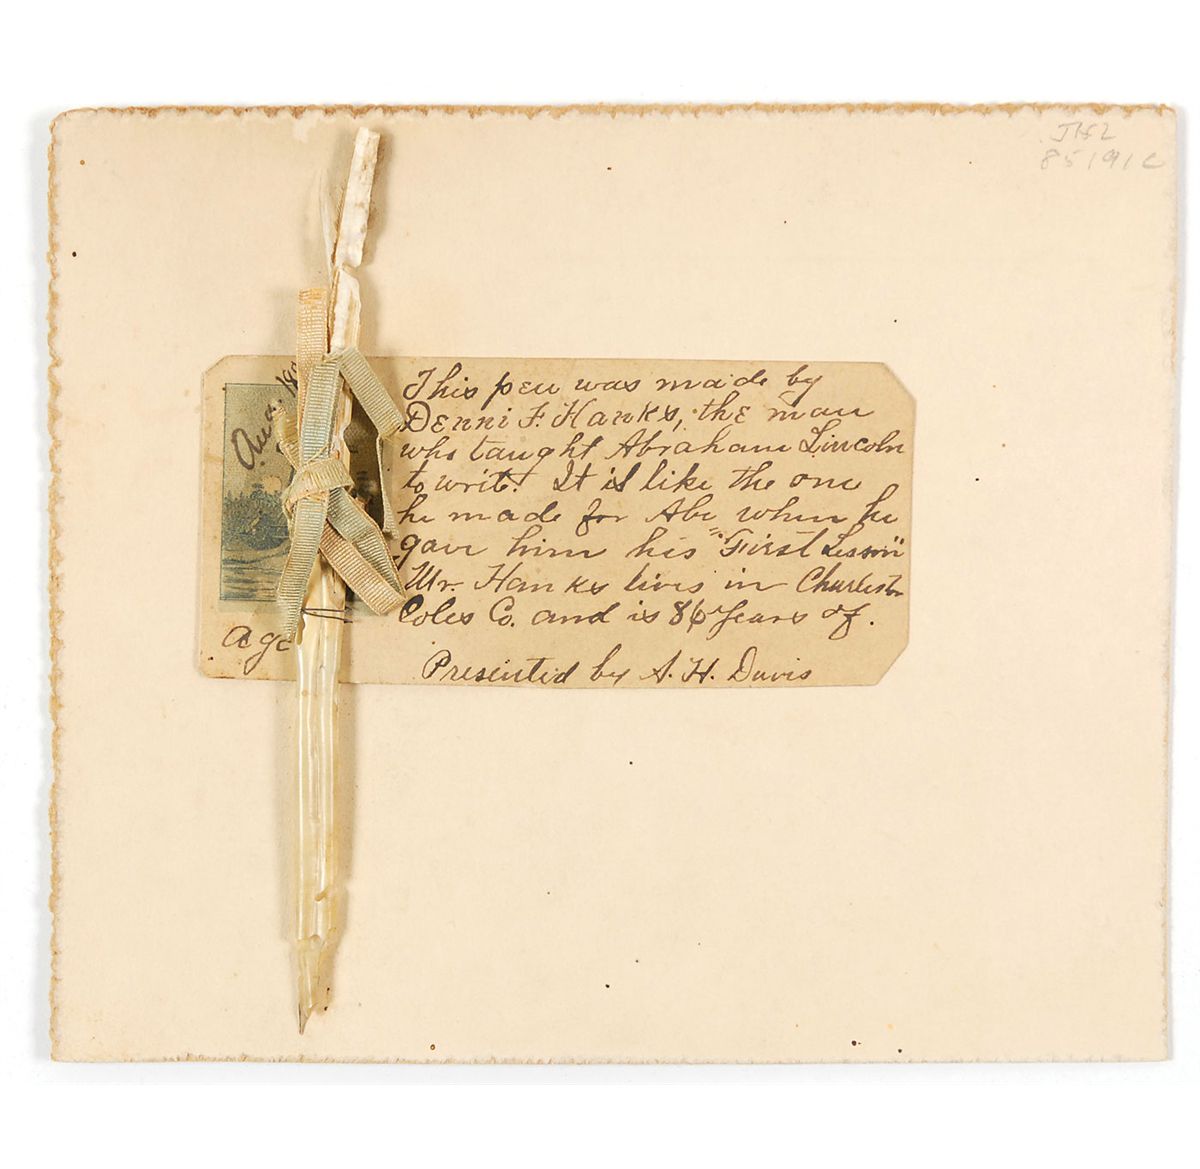 85191c
Aug.
This pen was made by
Denni F. Hanks, the man
who taught Abraham Lincoln
to write. It is like the one
he made for Abe when he
gave him his "First Lesson"
Mr. Hanks lives in Charleston
Coles Co. and is 86 years of.
age
Presented by A. H. Davis